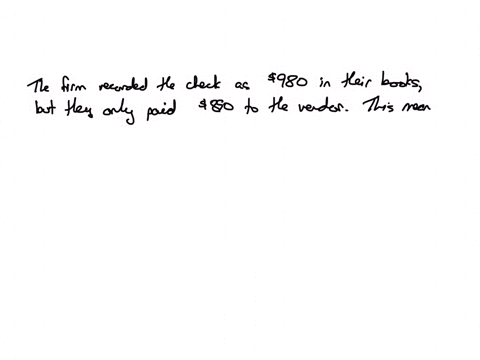 The firm recorded the check as $980 in their books,
but they only paid $850 to the vendor. This mean